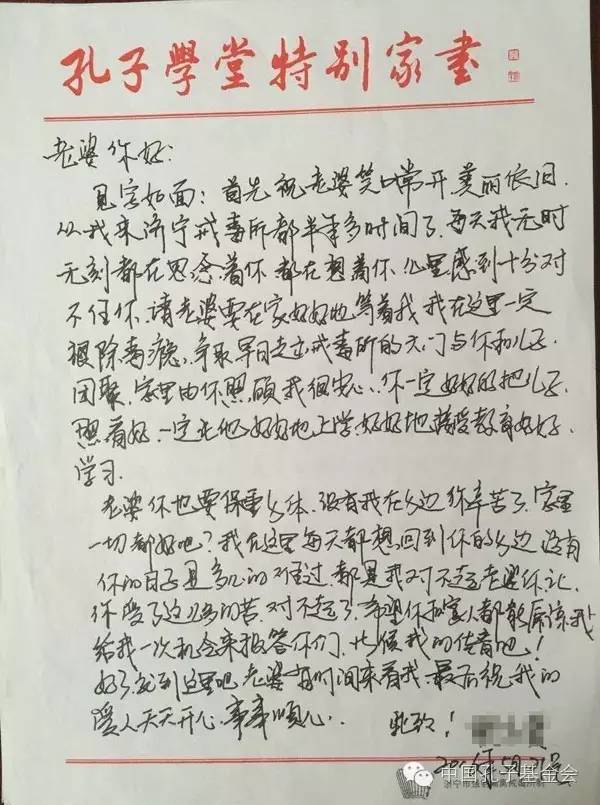 孔子學堂特别家書
老婆你好：
见字如面：首先祝老婆笑口常开美丽依旧.
从我来济宁戒毒所都半年多时间了，每天我无时
无刻都在思念着你都在想着你心里感到十分对
不住你，请老婆要在家好好地等着我我在这里一定
狠除毒瘾、争取早日走出戒毒所的大门与你和儿子
团聚，家里由你照顾我很安心、你一定好好的把儿子
照看好，一定让他好好地上学好好地接受教育好好
学习.
老婆你也要保重身体，没有我在身边你辛苦了，家里
一切都好吧？我在这里每天都想回到你的身边没有
你的日子是多么的难过，都是我对不起老婆你让
你受了这么多的苦，对不起了，希望你和家人都能原谅我
给我一次机会来报答你们，
好了就到这里吧老婆有时间来看我，最后祝我的
爱人天天开心，事事顺心..
此致！
2015年5月21号
中国孔子基金会